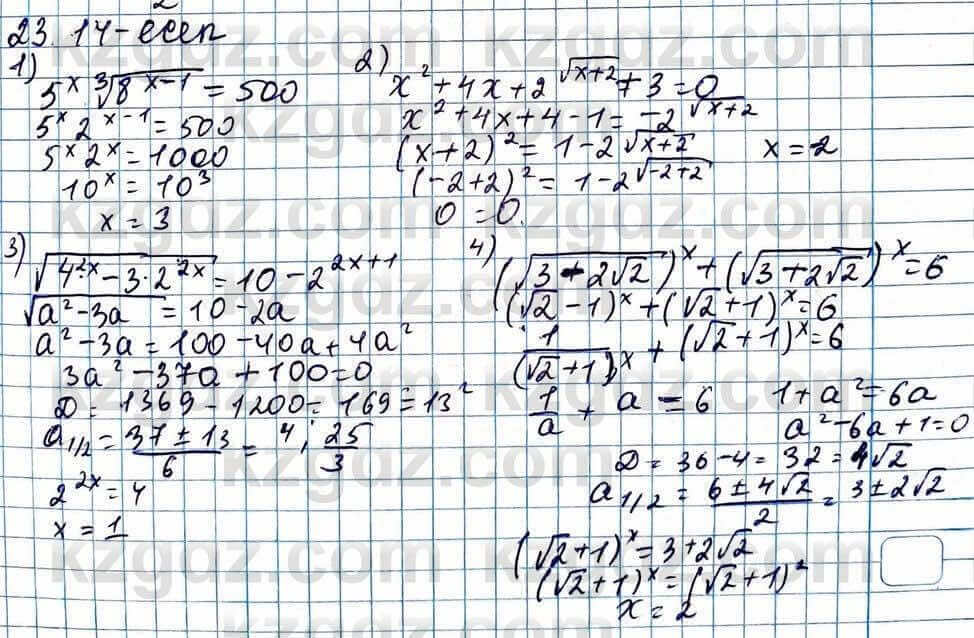 23.14-есеп
1)
5^x ∛(8^(x-1)) = 500
5^x 2^(x-1) = 500
5^x 2^x = 1000
10^x = 10^3
x = 3
2)
x^2 + 4x + 2^√(x+2) + 3 = 0
x^2 + 4x + 4 - 1 = -2^√(x+2)
(x+2)^2 = 1 - 2^√(x+2) x = -2
(-2+2)^2 = 1 - 2^√(-2+2)
0 = 0.
3)
√(4^(2x) - 3·2^(2x)) = 10 - 2^(2x+1)
√(a^2 - 3a) = 10 - 2a
a^2 - 3a = 100 - 40a + 4a^2
3a^2 - 37a + 100 = 0
D = 1369 - 1200 = 169 = 13^2
a_1/2 = (37 ± 13)/6 = 4; 25/3
2^(2x) = 4
x = 1
4)
(√(3 - 2√2))^x + (√(3 + 2√2))^x = 6
(√2 - 1)^x + (√2 + 1)^x = 6
1/(√2 + 1)^x + (√2 + 1)^x = 6
1/a + a = 6 1 + a^2 = 6a
a^2 - 6a + 1 = 0
D = 36 - 4 = 32 = 4√2
a_1/2 = (6 ± 4√2)/2 = 3 ± 2√2
(√2 + 1)^x = 3 + 2√2
(√2 + 1)^x = (√2 + 1)^2
x = 2
kzgdz.com